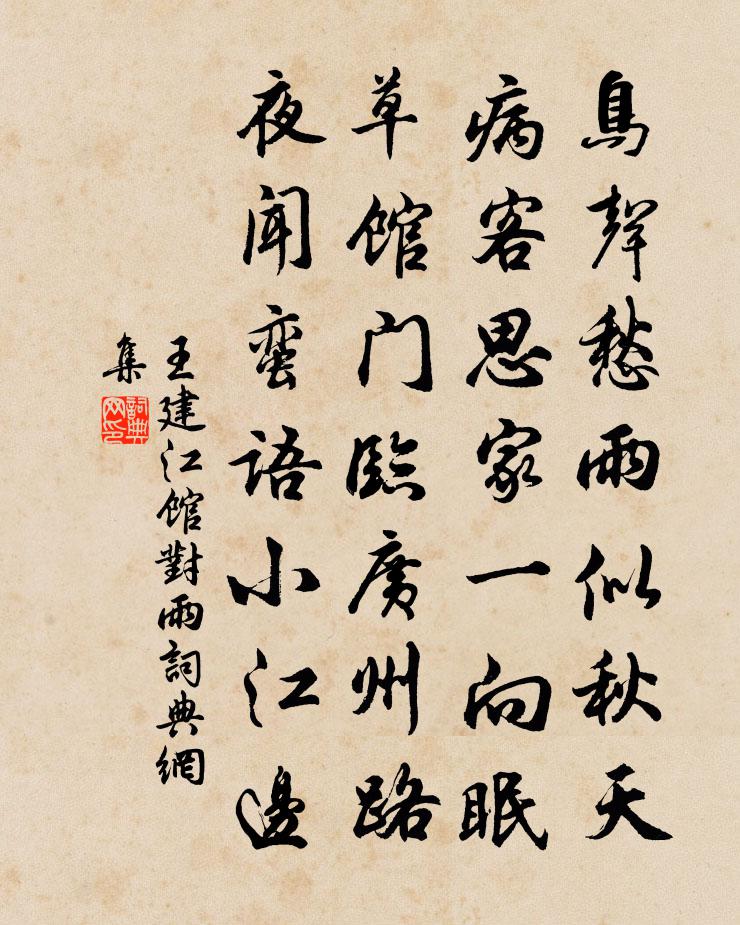 鳥聲愁雨似秋天
病客思家一向眠
草館門臨廣州路
夜聞蛮語小江邊
王建江館對雨詞典網
集
詞典
网印